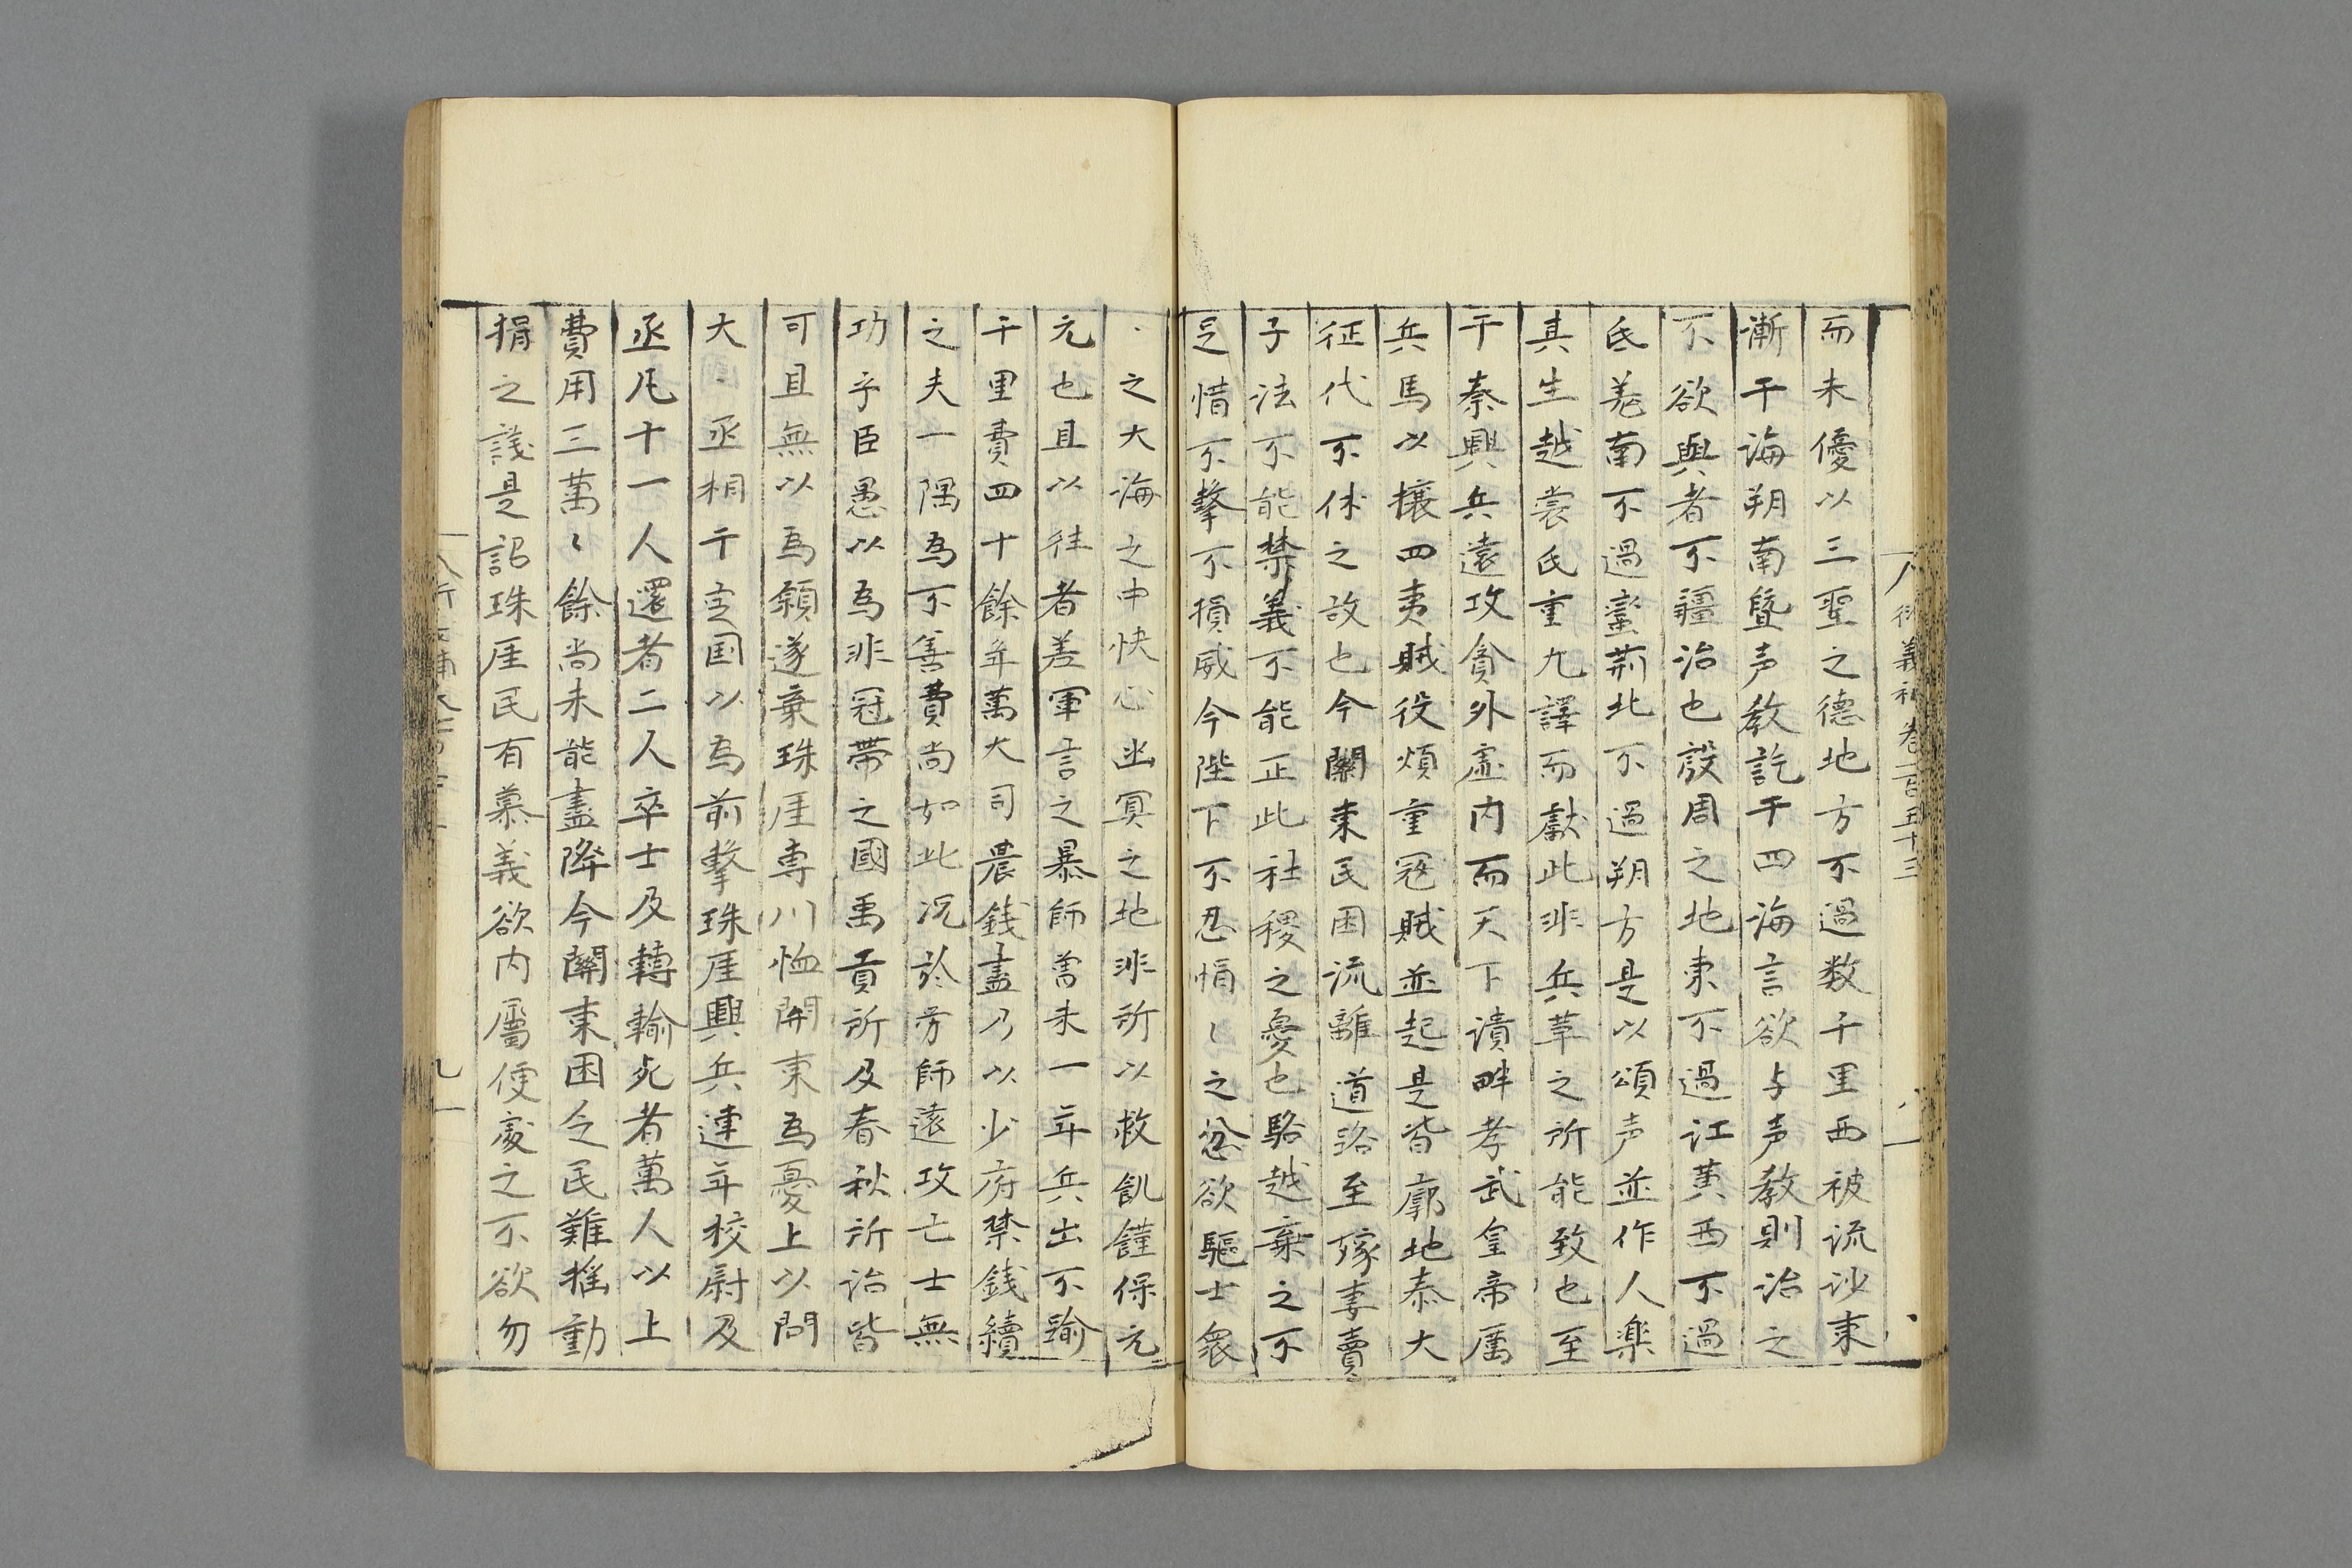 衍義補卷一百五十三
而未優以三聖之德地方不過数千里西被流沙東
漸于海朔南曁声教訖于四海言欲与声教則治之
不欲與者不疆治也殷周之地東不過江黄西不過
氐羌南不過蠻荊北不過朔方是以頌声並作人楽
其生越裳氏重九譯而獻此非兵革之所能致也至
于秦興兵遠攻貪外虚内而天下潰畔孝武皇帝厲
兵馬以攘四夷賊役煩重冦賊並起是皆廓地泰大
征代不休之故也今關東民困流離道路至嫁妻賣
子法不能禁義不能正此社稷之憂也駱越棄之不
足惜不擊不損威今陛下不忍悁〻之忿欲驅士衆
之大海之中快心幽冥之地非所以救飢饉保元
元也且以往者羌軍言之暴師曽未一年兵出不踰
千里費四十餘年萬大司農錢盡乃以少府禁錢續
之夫一隅為不善費尚如此况於労師遠攻亡士無
功乎臣愚以為非冠帶之國禹貢所及春秋所治皆
可且無以為願遂棄珠厓専川恤関東為憂上以問
大丞相于定国以為前擊珠厓興兵連年校尉及
丞凡十一人還者二人卒士及轉輸死者萬人以上
費用三萬〻餘尚未能盡降今關東困乏民難揺動
捐之議是詔珠厓民有慕義欲内屬便處之不欲勿
九